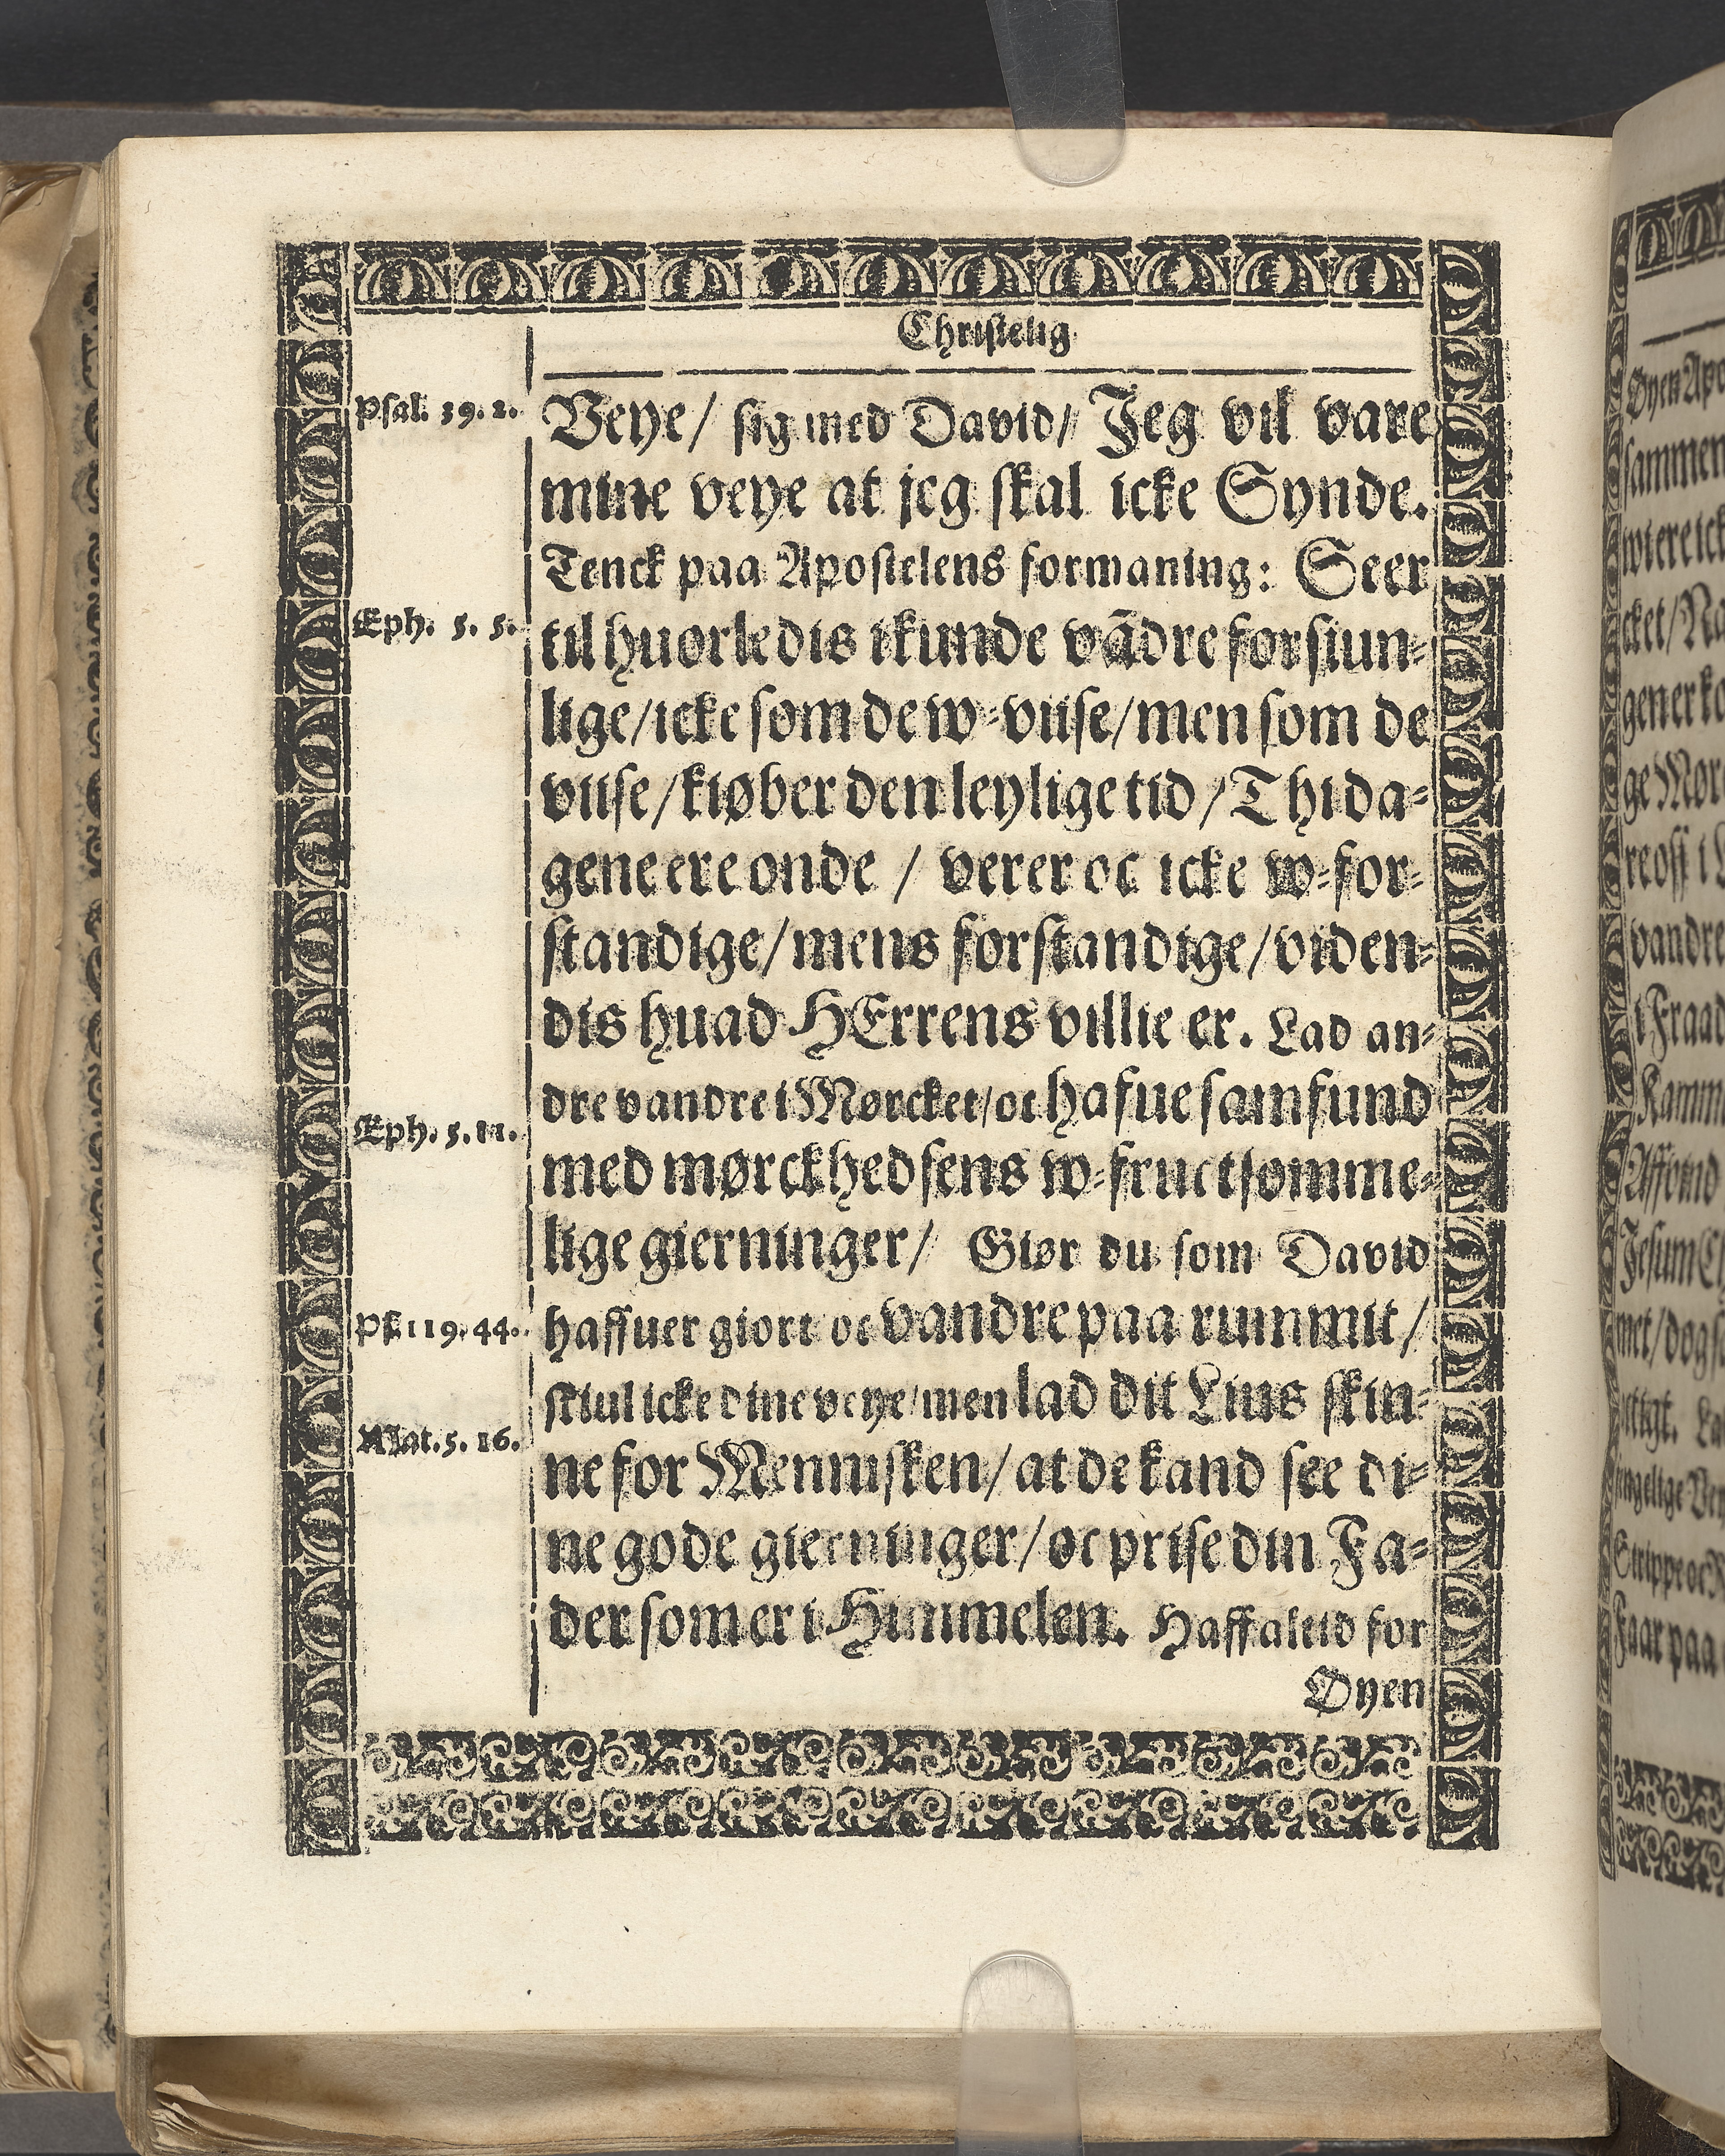 Christelig
Psal. 39. 2.
Veye / sig med David / Jeg vil vare
mine veye at jeg skal icke Synde.
Tenck paa Apostelens formaning: Seer
Eph. 5. 5.
til huorledis i kunde vādre forsiun-
lige / icke som de w-viise / men som de
viise / kiøber den leylige tid / Thi da-
gene ere onde / verer oc icke w-for-
standige / mens forstandige / viden-
dis huad HErrens villie er. Lad an-
dre vandre i Mørcket / oc hafue samfund
Eph. 5. 11.
med mørckhedsens w-fructsomme-
lige gierninger / Giør du som David
Ps. 119. 44.
haffuer giort oc vandre paa rummit /
skiul icke dine veye / men lad dit Lius skin-
Mat. 5. 16.
ne for Mennisken / at de kand see di-
ne gode gierninger / oc prise din Fa-
der som er i Himmelen. Haff altid for
Øyen